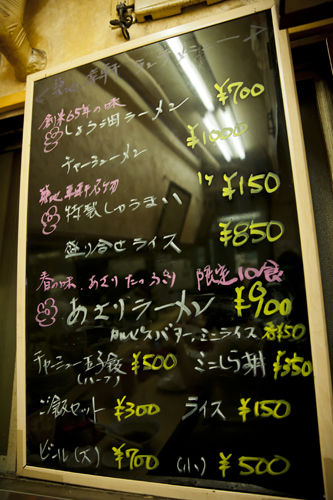 創業65年の味
しょう油ラーメン ¥700
チャーシューメン ¥1000
名物
特製しゅうまい 1ケ ¥150
盛り合せライス ¥850
春の味、あさりたっぷり 限定10食
あさりラーメン ¥900
カルピスバター、ミニライス 各¥50
チャーシュー玉子飯 (ハーフ) ¥500 ミニしらす丼 ¥350
ご飯セット ¥300 ライス ¥150
ビール(大) ¥700 (小) ¥500